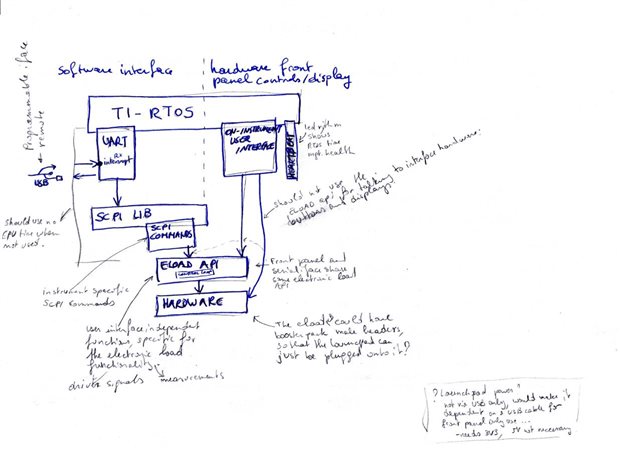 software interface
hardware front
panel controls/display
Programmable iface
remote
USB
TI-RTOS
UART
interrupt
ON-INSTRUMENT
USER
INTERFACE
HEARTBEAT
led rithm
shows
RTOS time
health
should not use the
ELOAD api for talking to interface hardware:
buttons and displays.
should use no
CPU time when
not used.
SCPI LIB
SCPI
COMMANDS
ELOAD API
HARDWARE
Front panel and
serial iface share
same electronic load
API
instrument specific
SCPI commands
user interface independent
functions, specific for
the electronic load
functionality
driver signals
measurements
The eload could have
boosterpack male headers,
so that the launchpad can
just be plugged onto it?
? Launchpad power?
not via USB only, would make it
dependent on a USB cable for
front panel only use ...
- needs 3V3, 5V not necessary